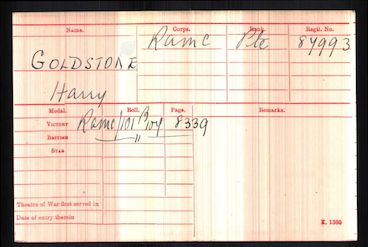 Name. Corps. Rank. Regtl. No.
GOLDSTONE RAMC Pte 87993
Harry
Medal. Roll. Page. Remarks.
VICTORY RAMC/101 B 8339
BRITISH " "
STAR
Theatre of War first served in
Date of entry therein
K. 1380